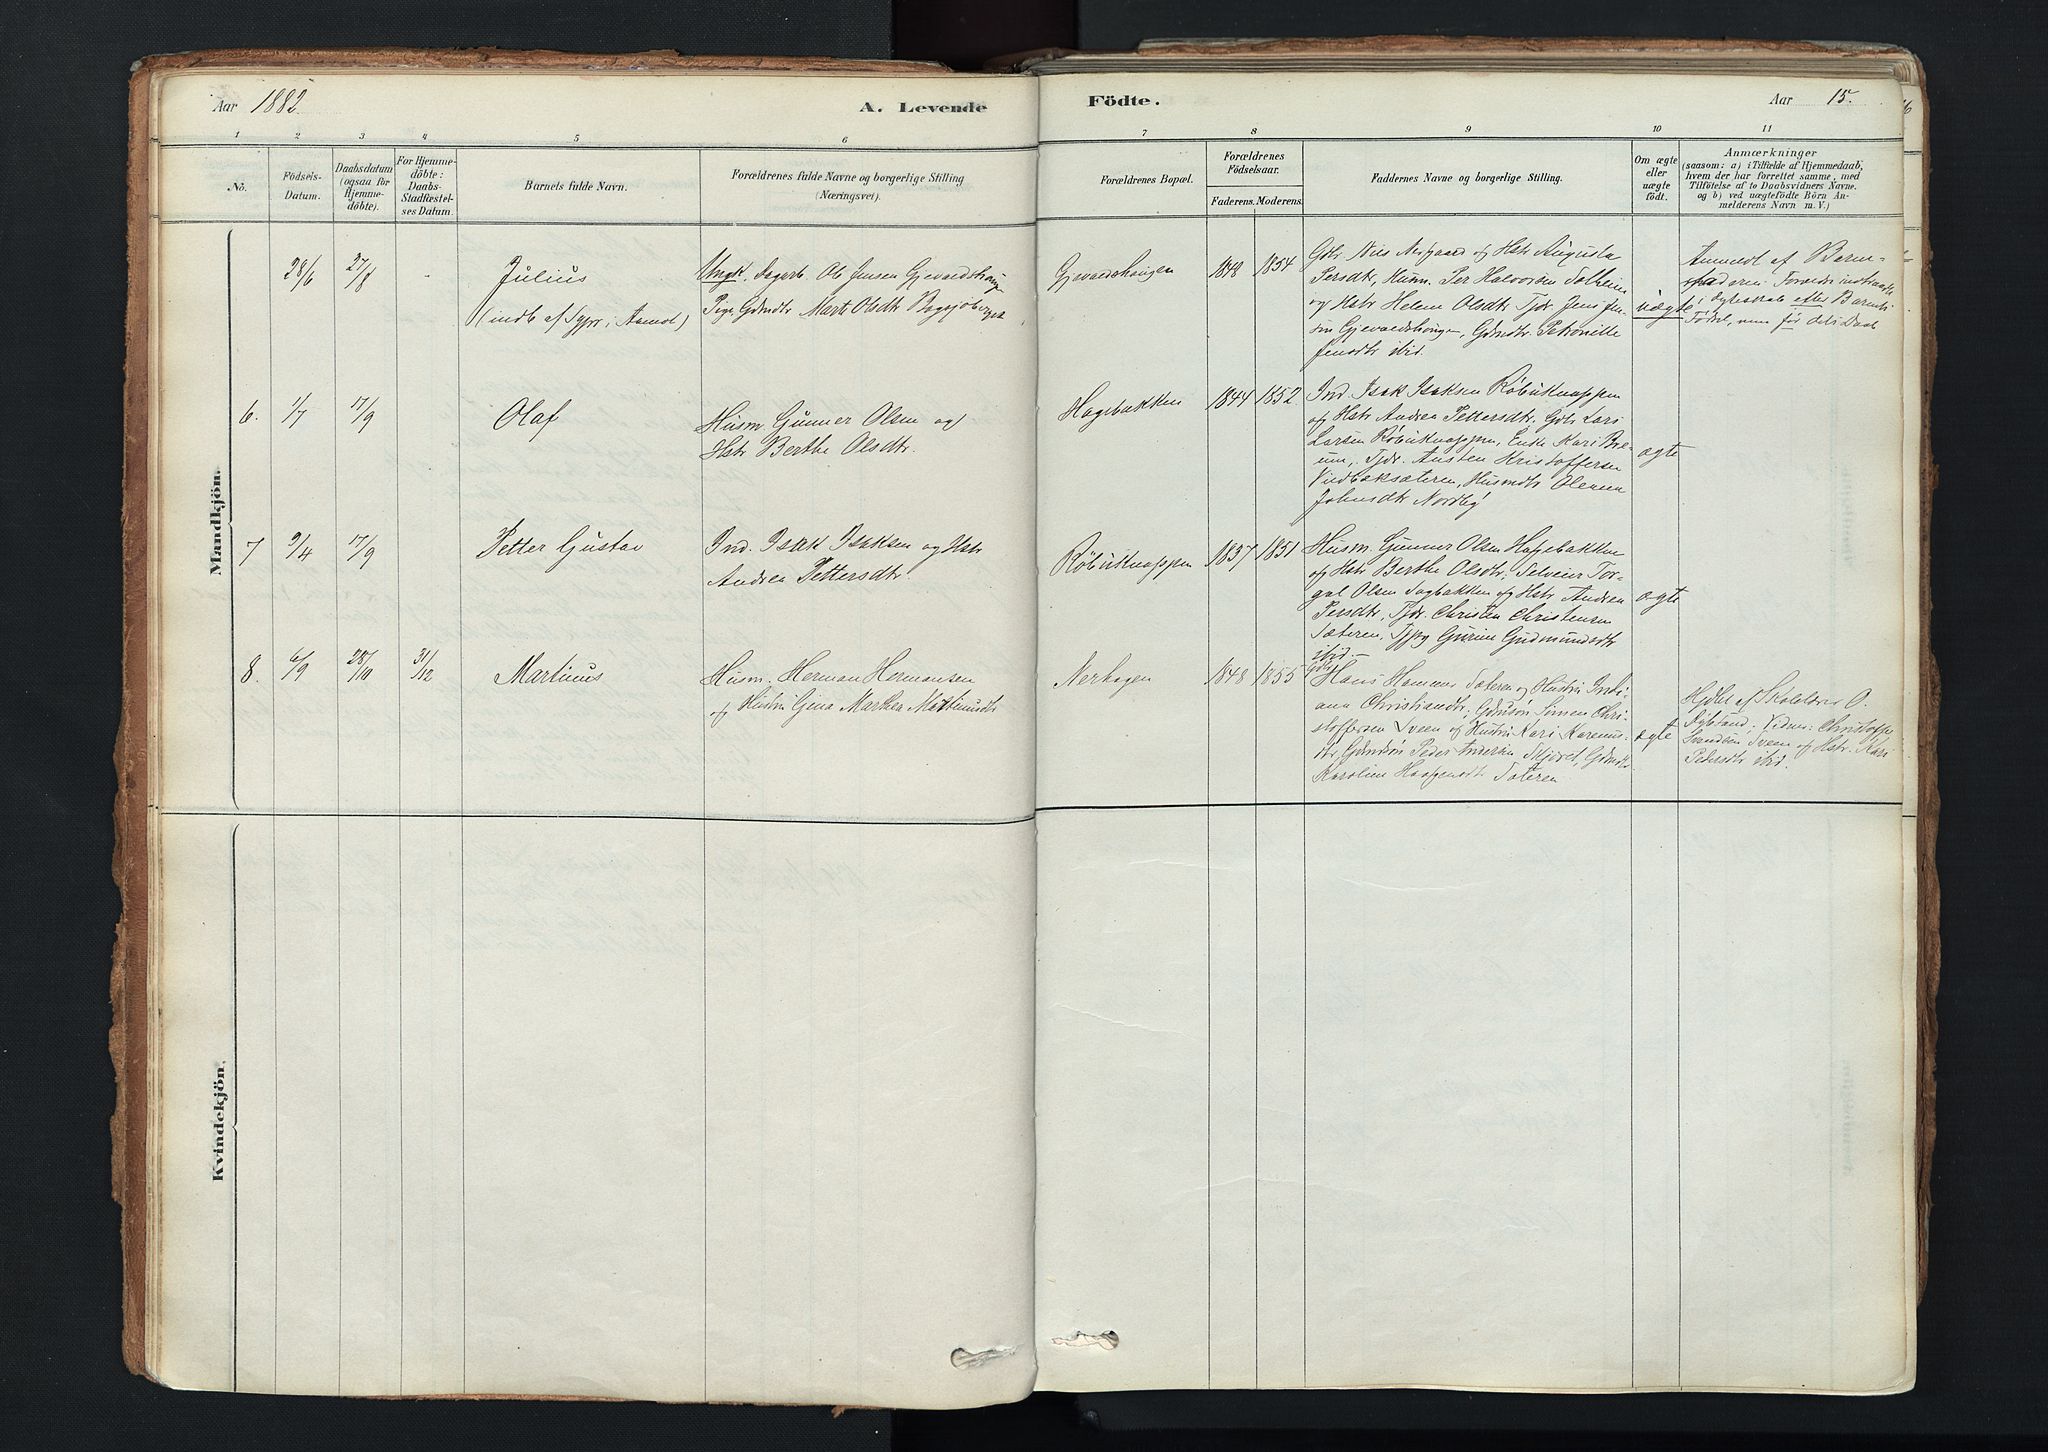 Aar 1882.
A. Levende
Födte.
Aar 15.
1 2 3 4 5 6 7 8 9 10 11
No.
Födsels-
Datum.
Daabsdatum
(ogsaa for
Hjemme-
döbte).
For Hjemme-
döbte:
Daabs-
Stadfæstel-
ses Datum.
Barnets fulde Navn.
Forældrenes fulde Navne og borgerlige Stilling
(Næringsvei).
Forældrenes Bopæl.
Forældrenes
Födselsaar.
Faderens. Moderens.
Faddernes Navne og borgerlige Stilling.
Om ægte
eller
uægte
födt.
Anmærkninger
(saasom: a) i Tilfælde af Hjemmedaab,
hvem der har forrettet samme, med
Tilföielse af to Daabsvidners Navne.
og b) ved uægtefödte Börn An-
melderens Navn m. V.)
Mandkjön.
28/6 27/8 -
Julius
(indb. af Sypr. i Aamot)
Ungk. Ole Jensen Gjevaldshaugen
Pige Gdmdtr Marte Olsdtr
Gjevaldshaugen
1848 1854
Gbr. Nils og Hstr Augusta
Persdtr, Husm. Per Halvorsen
og Hstr Helene Olsdtr Tjdr Jens Jen-
sen Gjevaldshaugen, Gdmdtr Petronille
Jensdtr ibid.
uægte!
Anmeldt af Barne-
faderen. Forældr. indtraadt i
Ægteskab efter Barnets
Födsel, men för dets Daab
6. 1/7 17/9
Olaf
Husm. Gunner Olsen og
Hstr Berthe Olsdtr.
Hagebakken
1844 1852
Ind. Isak Isaksen Röbuknappen
og Hstr Andrea Pettersdtr, Gbr. Lars
Larsen Röbuknappen, Enke Kari Bre-
um, Tjdr. Austen Kristoffersen
Vindbæksæteren, Husmdtr Olenna
Johnsdtr Nordby
ægte
7 9/4 17/9
Petter Gustav
Ind. Isak Isaksen og Hstr
Andrea Pettersdtr.
Röbuknappen
1837 1851
Husm. Gunner Olsen Hagebakken
og Hstr Berthe Olsdtr; Selveier Tor-
gal Olsen Sagbakken og Hstr Andrea
Persdtr, Tjdr. Christen Christensen
Sæteren, Tjpg Gurine Gudmundsdtr
ibid.—
ægte
8. 6/9 28/10 31/12
Martinus
Husm. Herman Hermansen
og Hustru Gina Marthea Martinusdtr
Nerhagen
1848 1855
Gbr.
Hans Hammer Sæteren og Hustru Indi-
ana Christiansdtr, Gdmsön Simen Chri-
stoffersen Sveen og Hustru Kari Karenus-
dtr, Gdmdsön Peder Andersen, Gdmdtr
Karoline Haagensdtr Sæteren
ægte
Hjdbt af Skolelærer O.
Vidner: Christoffer
Svendsen Sveen og Hstr. Kari
Pedersdtr ibid.
Kvindekjön.